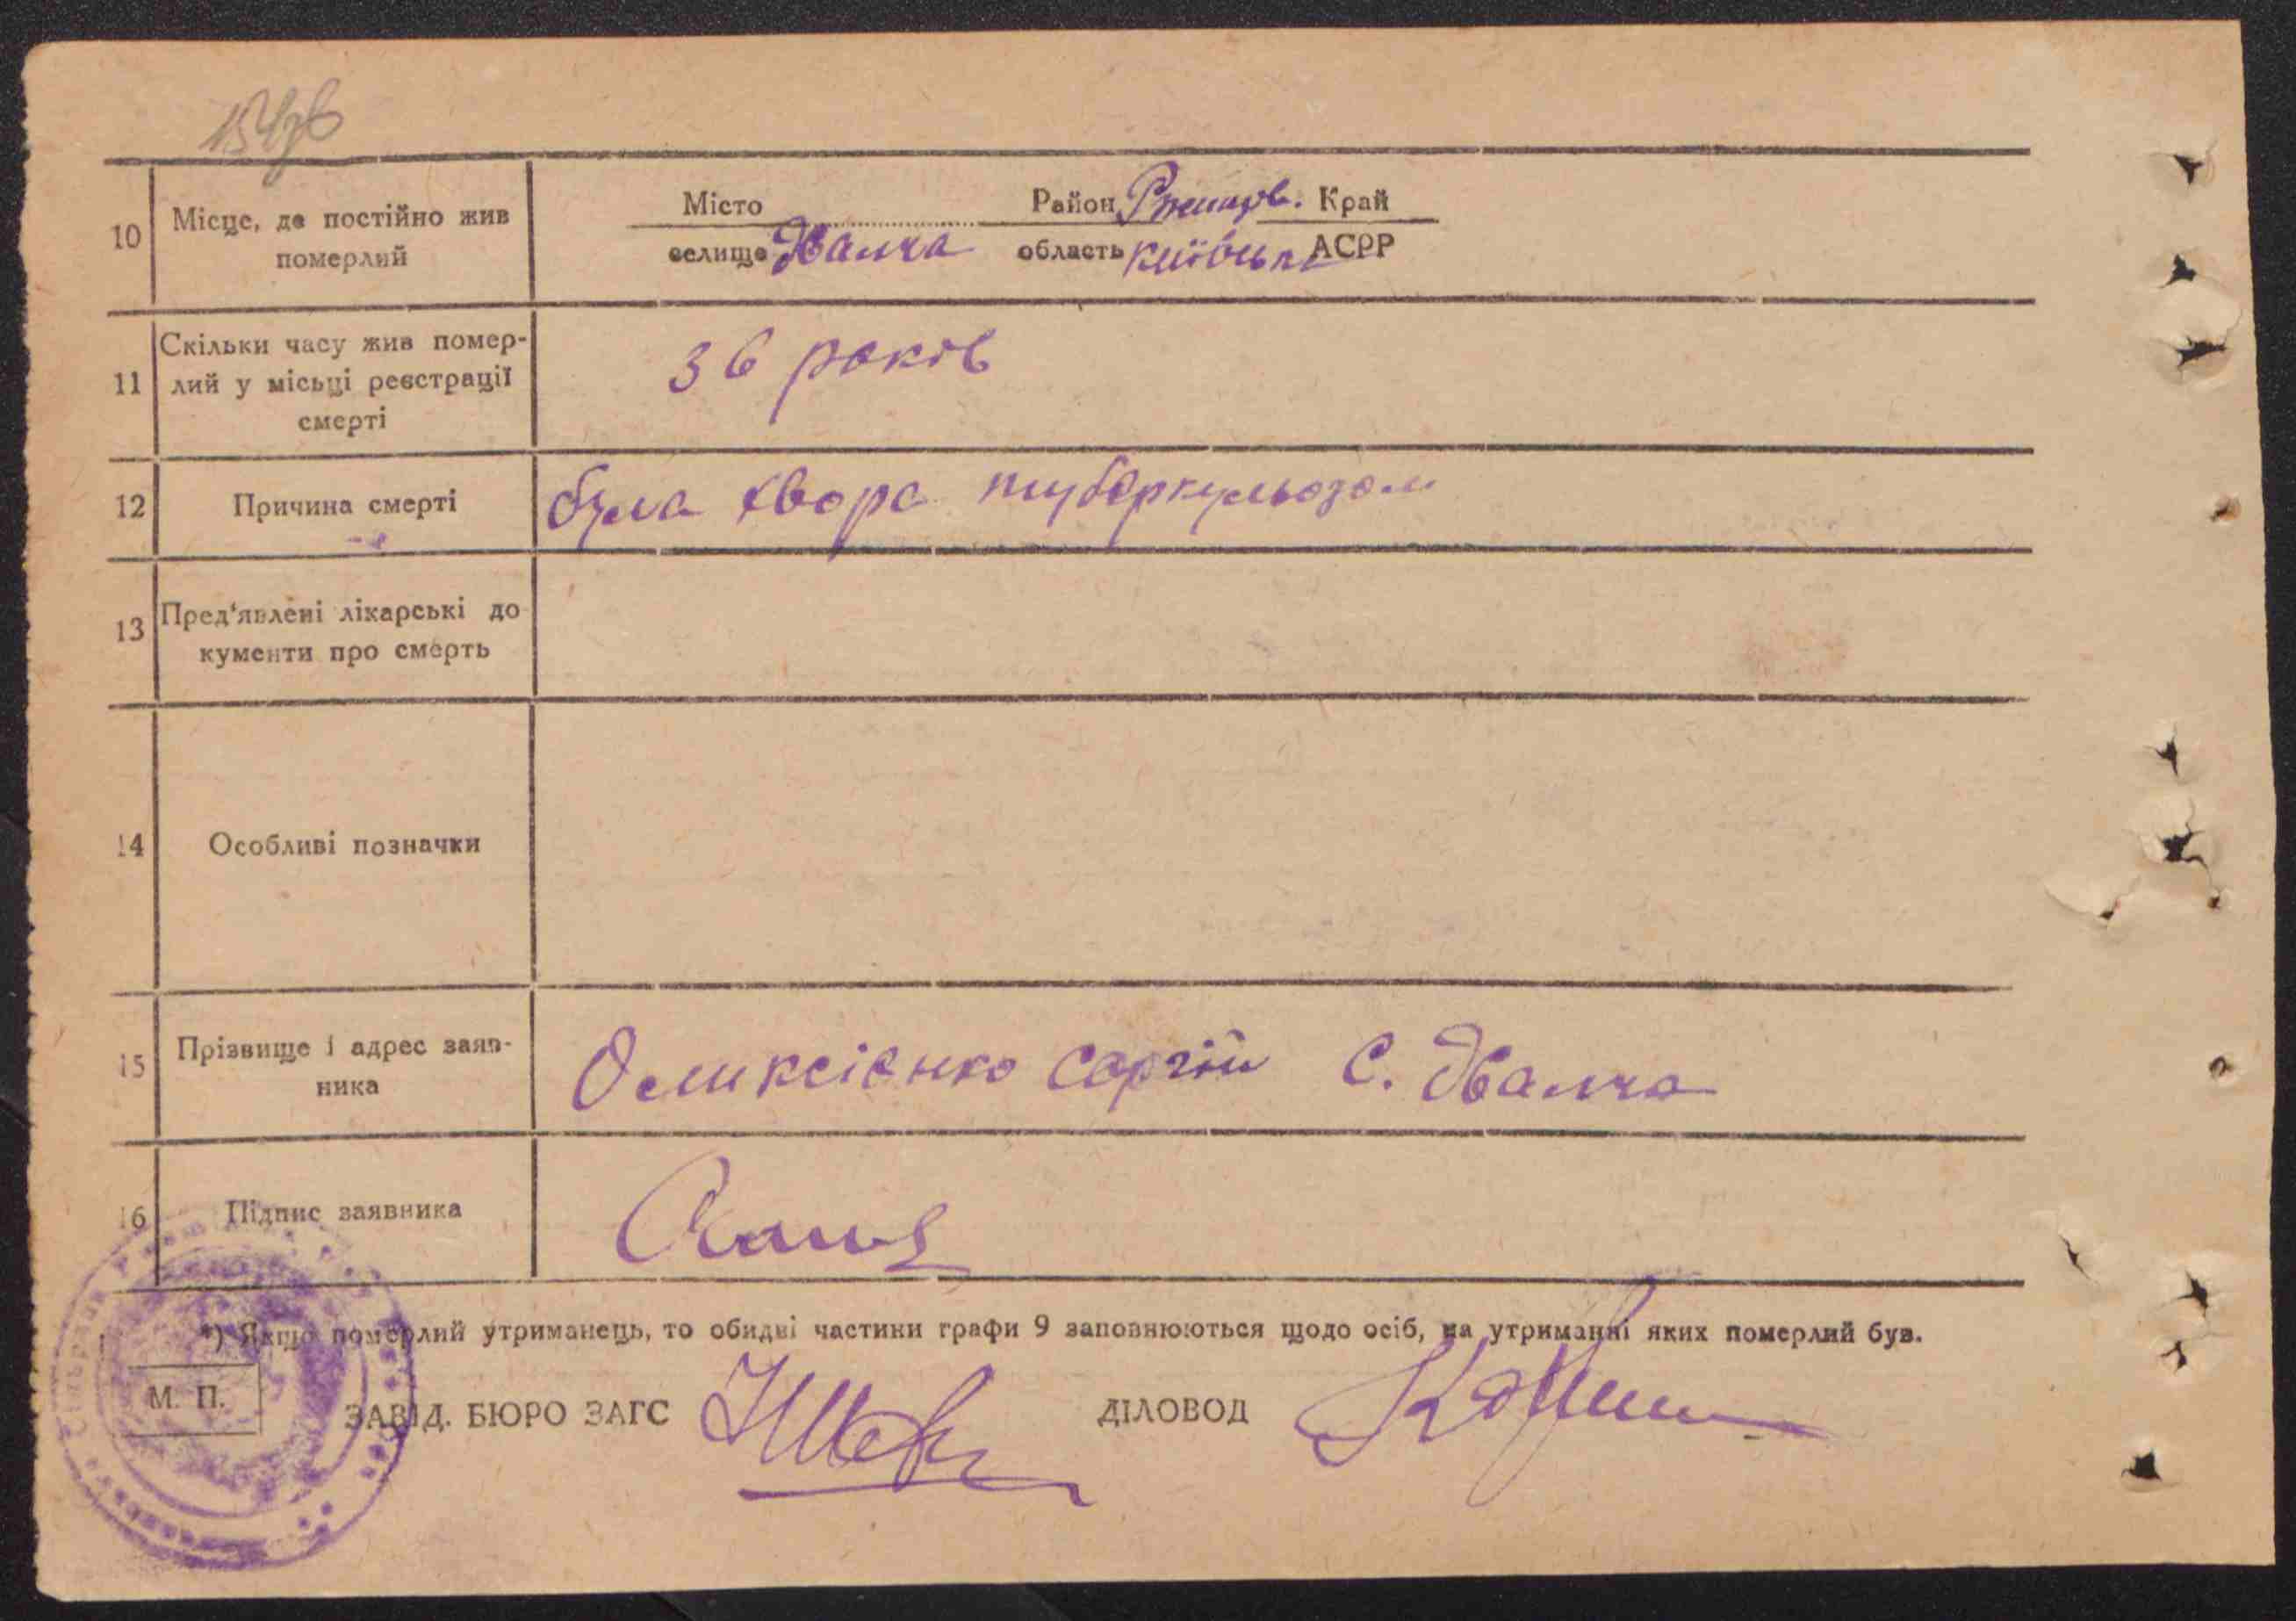 10 Місце, де постійно жив
померлий
Місто Район Ржищів. Край
селище Жалча область Київська АСРР
11 Скільки часу жив помер-
лий у місьці реєстрації
смерті
36 років
12 Причина смерті
була хвора туберкульозом
13 Пред'явлені лікарські до
кументи про смерть
14 Особливі позначки
15 Прізвище і адрес заяв-
ника
Сергій С.
16 Підпис заявника
*) Якщо померлий утриманець, то обидві частини графи 9 заповнюються щодо осіб, на утриманні яких померлий був.
М. П.
ЗАВІД. БЮРО ЗАГС
ДІЛОВОД